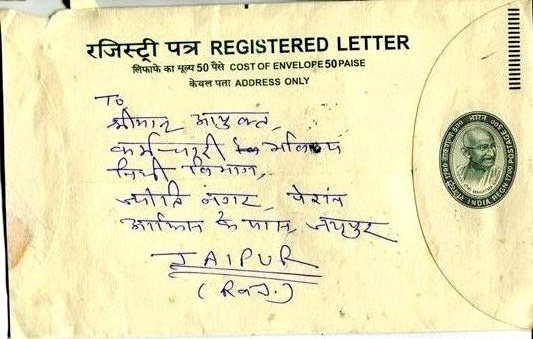 रजिस्ट्री पत्र REGISTERED LETTER
लिफाफे का मूल्य 50 पैसे COST OF ENVELOPE 50 PAISE
केवल पता ADDRESS ONLY
To
श्रीमान आयुक्त,
कर्मचारी भविष्य
निधी विभाग,
ज्योति नगर,
के पास, जयपुर
JAIPUR
(Raj.)
भारत
INDIA REGN 1700 POSTAGE